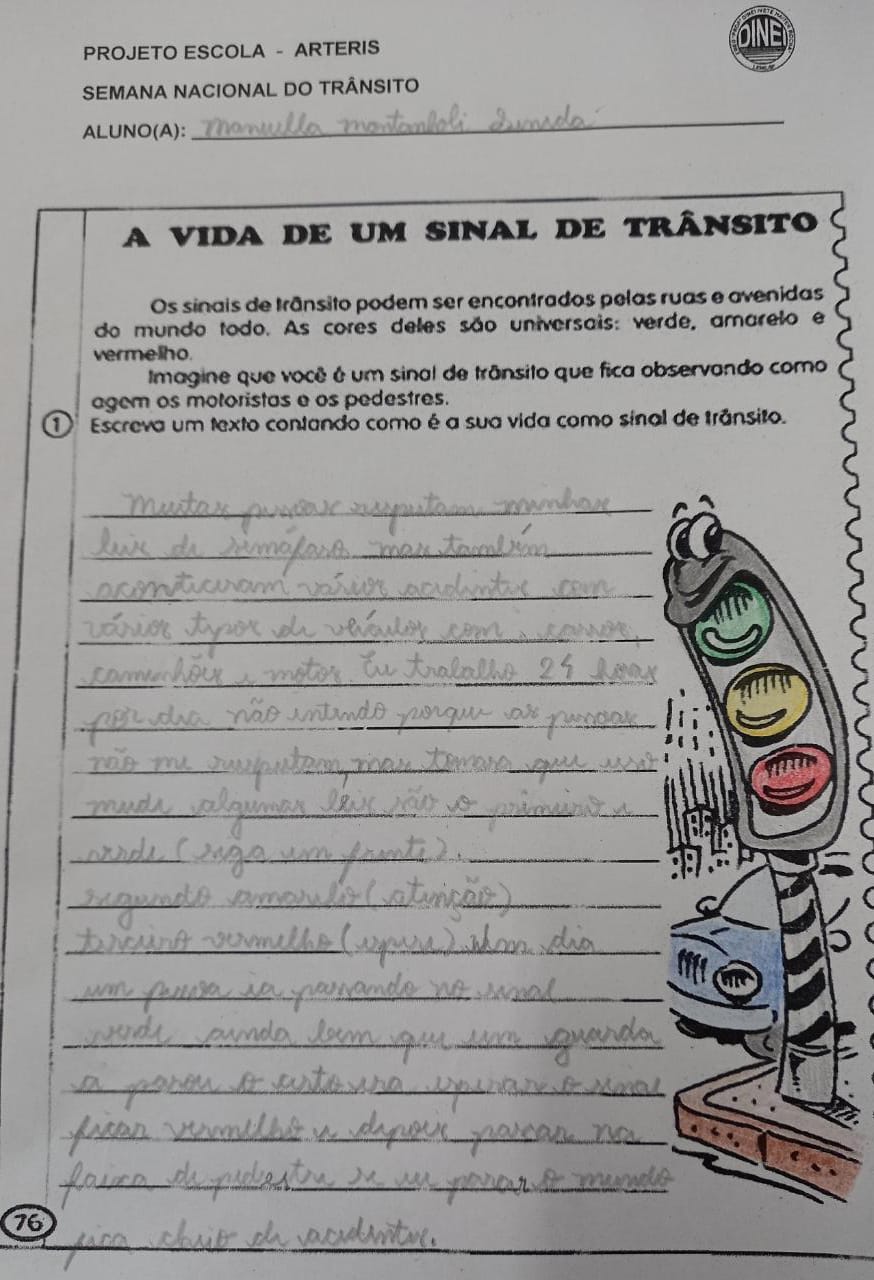 PROJETO ESCOLA - ARTERIS
DINE
SEMANA NACIONAL DO TRÂNSITO
ALUNO(A): Manuella
A VIDA DE UM SINAL DE TRÂNSITO
Os sinais de trânsito podem ser encontrados pelas ruas e avenidas
do mundo todo. As cores deles são universais: verde, amarelo e
vermelho.
Imagine que você é um sinal de trânsito que fica observando como
agem os motoristas e os pedestres.
1 Escreva um texto contando como é a sua vida como sinal de trânsito.
Muitas pessoas respeitam minhas
leis de semáfaro mas também
aconteceram vários acidentes com
vários typos de veículos com, carros,
caminhões e motos. Eu trabalho 24 horas
por dia não entendo porque as pessoas
não me respeitam, mas tomara que isso
mude algumas leis são o primeiro e
verde (siga em frente).
segundo amarelo (atenção)
terceiro vermelho (espere). Um dia
um pessoa ia passando no sinal
verde ainda bem que um guarda
a parou o certo era esperar o sinal
ficar vermelho e depois passar na
faixa de pedestre se eu parar o mundo
fica cheio de acidentes.
76